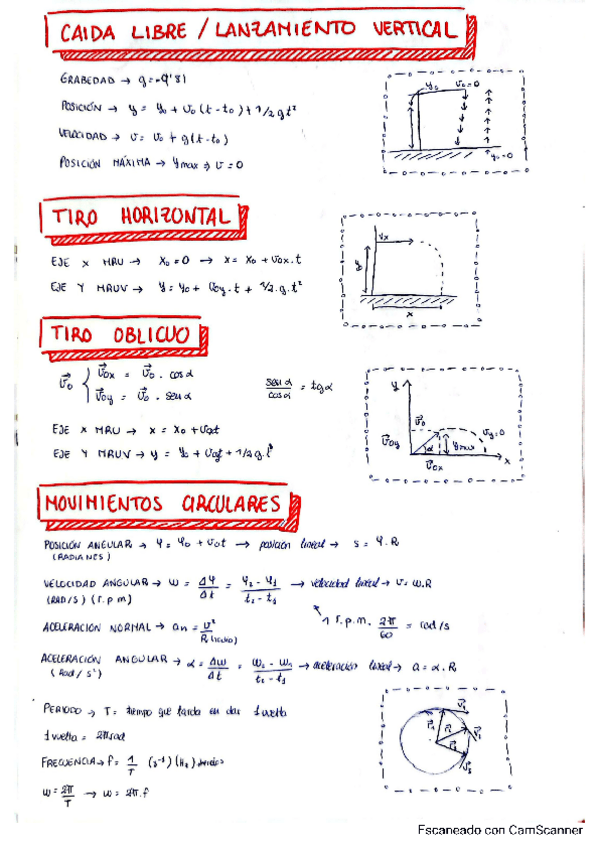 CAIDA LIBRE / LANZAMIENTO VERTICAL
GRABEDAD → g = -9'81
POSICIÓN → y = y₀ + v₀(t - t₀) + 1/2 g t²
VELOCIDAD → v = v₀ + g(t - t₀)
POSICIÓN MÁXIMA → ymax ⇒ v = 0
y₀ v₀ = 0
y₀ = 0
TIRO HORIZONTAL
EJE X MRU → x₀ = 0 → x = x₀ + v₀x . t
EJE Y MRUV → y = y₀ + v₀y . t + 1/2 . g . t²
vx
x
TIRO OBLICUO
v₀ { v₀x = v₀ . cos α
v₀y = v₀ . sen α
sen α / cos α = tg α
EJE X MRU → x = x₀ + v₀t
EJE Y MRUV → y = y₀ + v₀t + 1/2 g . t²
y
v₀
v₀y α ymax vy = 0
x
v₀x
MOVIMIENTOS CIRCULARES
POSICIÓN ANGULAR → φ = φ₀ + v₀t → posición lineal → s = φ . R
(RADIANES)
VELOCIDAD ANGULAR → w = Δφ / Δt = φ₂ - φ₁ / t₂ - t₁ → velocidad lineal → v = w.R
(RAD/S) (r.p.m)
1 r.p.m. 2π / 60 = rad/s
ACELERACIÓN NORMAL → an = v² / R (radio)
ACELERACIÓN ANGULAR → α = Δw / Δt = w₂ - w₁ / t₂ - t₁ → aceleración lineal → a = α . R
(Rad / s²)
PERIODO → T = tiempo que tarda en dar 1 vuelta
1 vuelta = 2π rad
FRECUENCIA → f = 1 / T (s⁻¹) (Hz)
w = 2π / T → w = 2π . f
Escaneado con CamScanner